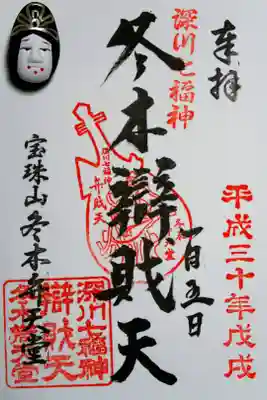 奉拝
平成三十年戊戌
一月五日
深川七福神
冬木辯財天
深川七福神
弁財天
宝珠山冬木弁天堂
深川七福神
辯財天
冬木弁天堂